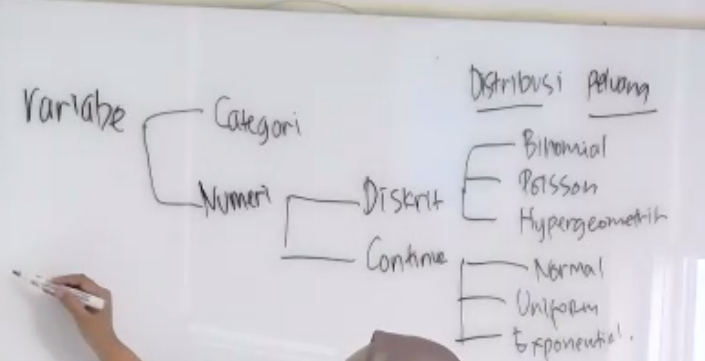 Distribusi Peluang
Variabe
Categori
Numeri
Diskrit
Binomial
Poisson
Hypergeometrik
Continue
Normal
Uniform
Exponential.